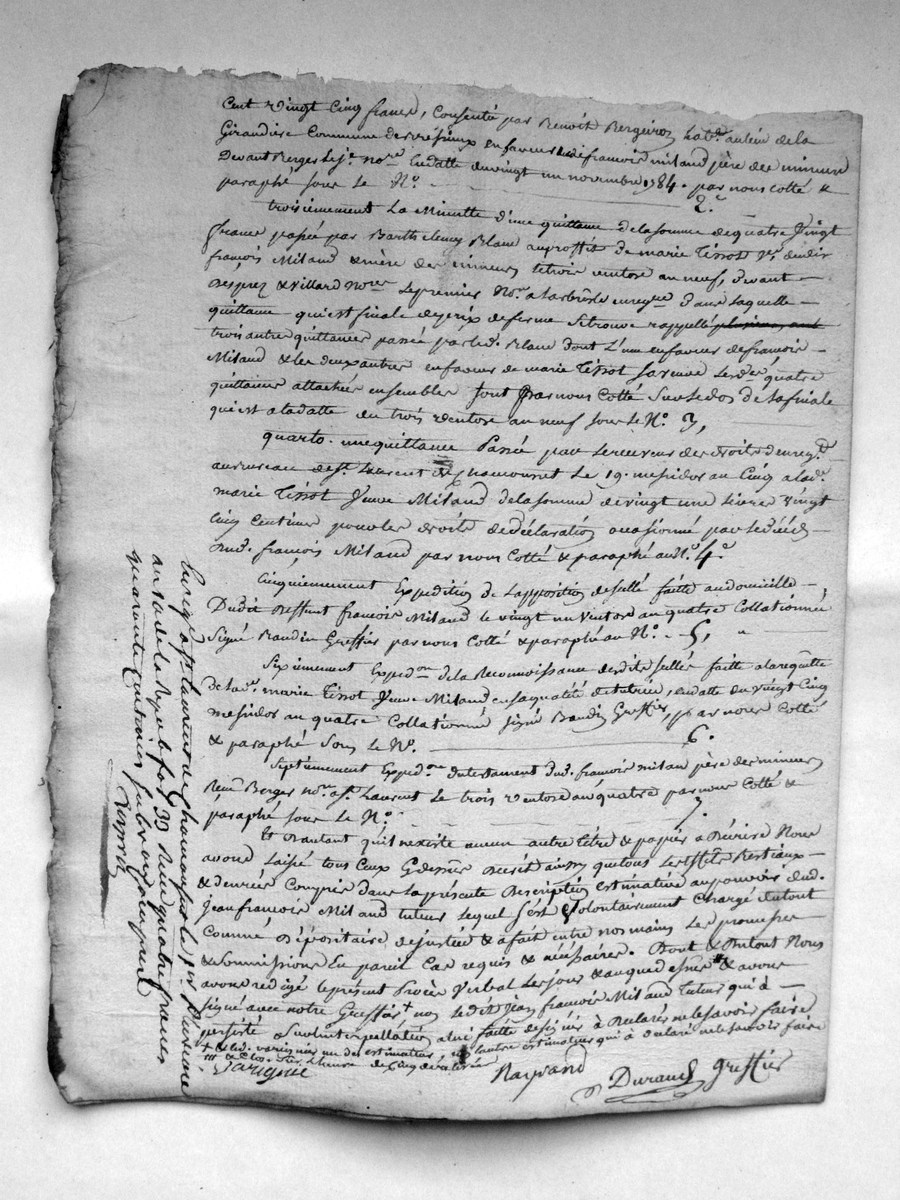 Cent vingt cinq francs, Consenté par Benoit Bergeron habt. au lieu de la
Girandiere Commune de en faveur dud. françois miland père des mineurs
Devant Berger Le je. nore. En datte du vingt un novembre 1784. par nous cotté &
paraphé sous le No. 2.e
troisiemement La Minutte d'une quittance de la somme de quatre vingt
francs passée par Barthelemy Blanc au proffit de marie Tissot ve. dudit
françois Miland & mère des mineurs le trois ventose an neuf, devant
Desprez & villard nores. Le premier Nore. a Larbresle enregtré. Dans laquelle
quittance qui est finale de prix de ferme Se trouve rappellé
trois autre quittances passée par led. Blanc dont L'une en faveur de françois
Miland & les deux autres en faveur de marie Tissot sa veuve Lesdes. quatre
quittances attachées ensembles sont par nous Cotté Sur le dos de la finale
qui est a la datte du trois ventose an neuf sous le No. 3,
quarto. une quittance Passée par le receveur des droits d'enregt.
au bureau de St. Laurent de Chamousset Le 19. messidor an Cinq a lade.
marie Tissot veuve Miland de la somme de vingt une livres vingt
Cinq Centimes pour les droits de déclaration occasionné par le décés
dud. françois Miland par nous Cotté & paraphé au No. 4.e
Cinquiemement Expedition de l'apposition de sellé faitte au domicille
Dudit deffunt françois Miland le vingt un ventose an quatre Collationnée
Signé Baudin Greffier par nous Cotté & paraphé au No. 5,
Sixiemement Expedon. de la Reconnoissance desdits sellés faitte a la requette
de lade. marie Tissot veuve Miland en sa qualité de tutrice, en datte du vingt Cinq
messidor an quatre Collationné signé Baudin Greffier, par nous Cotté
& paraphé Sous le No. 6.
Septiemement Expedon. du testament dud. françois milan père des mineurs
Reçu Berger nore. a St. Laurent Le trois ventose an quatre par nous Cotté &
paraphé sous le No. 7.
Et D'autant qu'il n'existe aucun autre titre & papiers a Décrire Nous
avons Laissé tous Ceux Cy dessus Décrit ainsy que tous les effets Bestiaux
& denrées Compris Dans la présente Description estimative au pouvoir dud.
Jean françois Miland tuteur Lequel s'est volontairement Chargé du tout
Comme Dépositaire de justice & a fait entre nos mains Les promesses
& Soumissions En pareil Cas requis & nécéssaires. Dont & Du tout Nous
avons redigé le présent Procès Verbal Les jour & an que dessus & avons
signé avec notre Greffier non ledit Jean françois Miland tuteur qui a
persisté Sur l'interpellation a lui faitte de signer à Declaré ne le savoir faire
& led. varignier un des estimateurs, l'autre estimateur qui à déclaré ne le savoir faire
& Clos. Sur L'heure de Cinq de relevée
Varignier Raynand Durand Greffier
Enregé. a St. Laurent de Chamousset le 1er. Messidor
an 10 de la Rep. fo. 39 Reçu quatre francs
quarante centimes subvention comprise